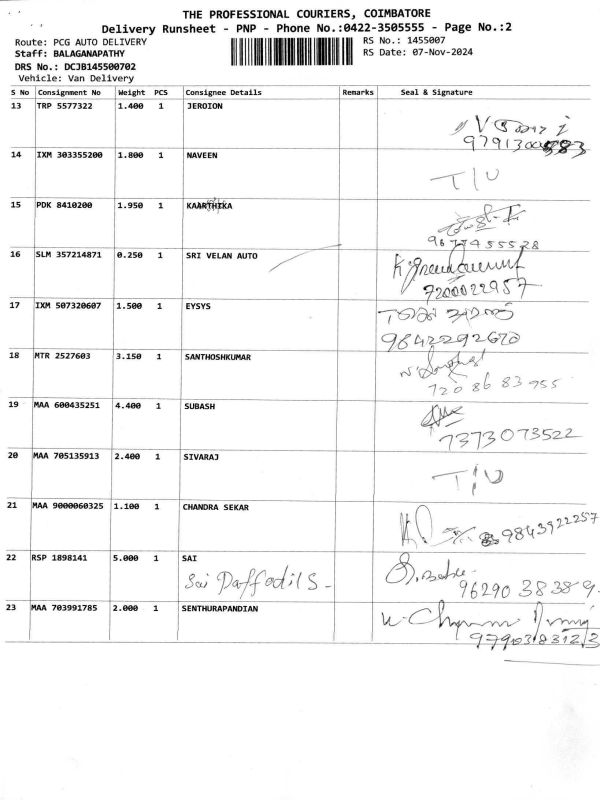 THE PROFESSIONAL COURIERS, COIMBATORE
Delivery Runsheet - PNP - Phone No.:0422-3505555 - Page No.:2
Route: PCG AUTO DELIVERY RS No.: 1455007
Staff: BALAGANAPATHY RS Date: 07-Nov-2024
DRS No.: DCJB145500702
Vehicle: Van Delivery
S No Consignment No Weight PCS Consignee Details Remarks Seal & Signature
13 TRP 5577322 1.400 1 JEROION
14 IXM 303355200 1.800 1 NAVEEN
T/U
15 PDK 8410200 1.950 1 KAARTHIKA
9677455528
16 SLM 357214871 0.250 1 SRI VELAN AUTO
7200022957
17 IXM 507320607 1.500 1 EYSYS
9842292670
18 MTR 2527603 3.150 1 SANTHOSHKUMAR
720 86 83 755
19 MAA 600435251 4.400 1 SUBASH
7373073522
20 MAA 705135913 2.400 1 SIVARAJ
T/U
21 MAA 9000060325 1.100 1 CHANDRA SEKAR
9843922257
22 RSP 1898141 5.000 1 SAI
Sai Daffodils -
96290 38389
23 MAA 703991785 2.000 1 SENTHURAPANDIAN
9790383123